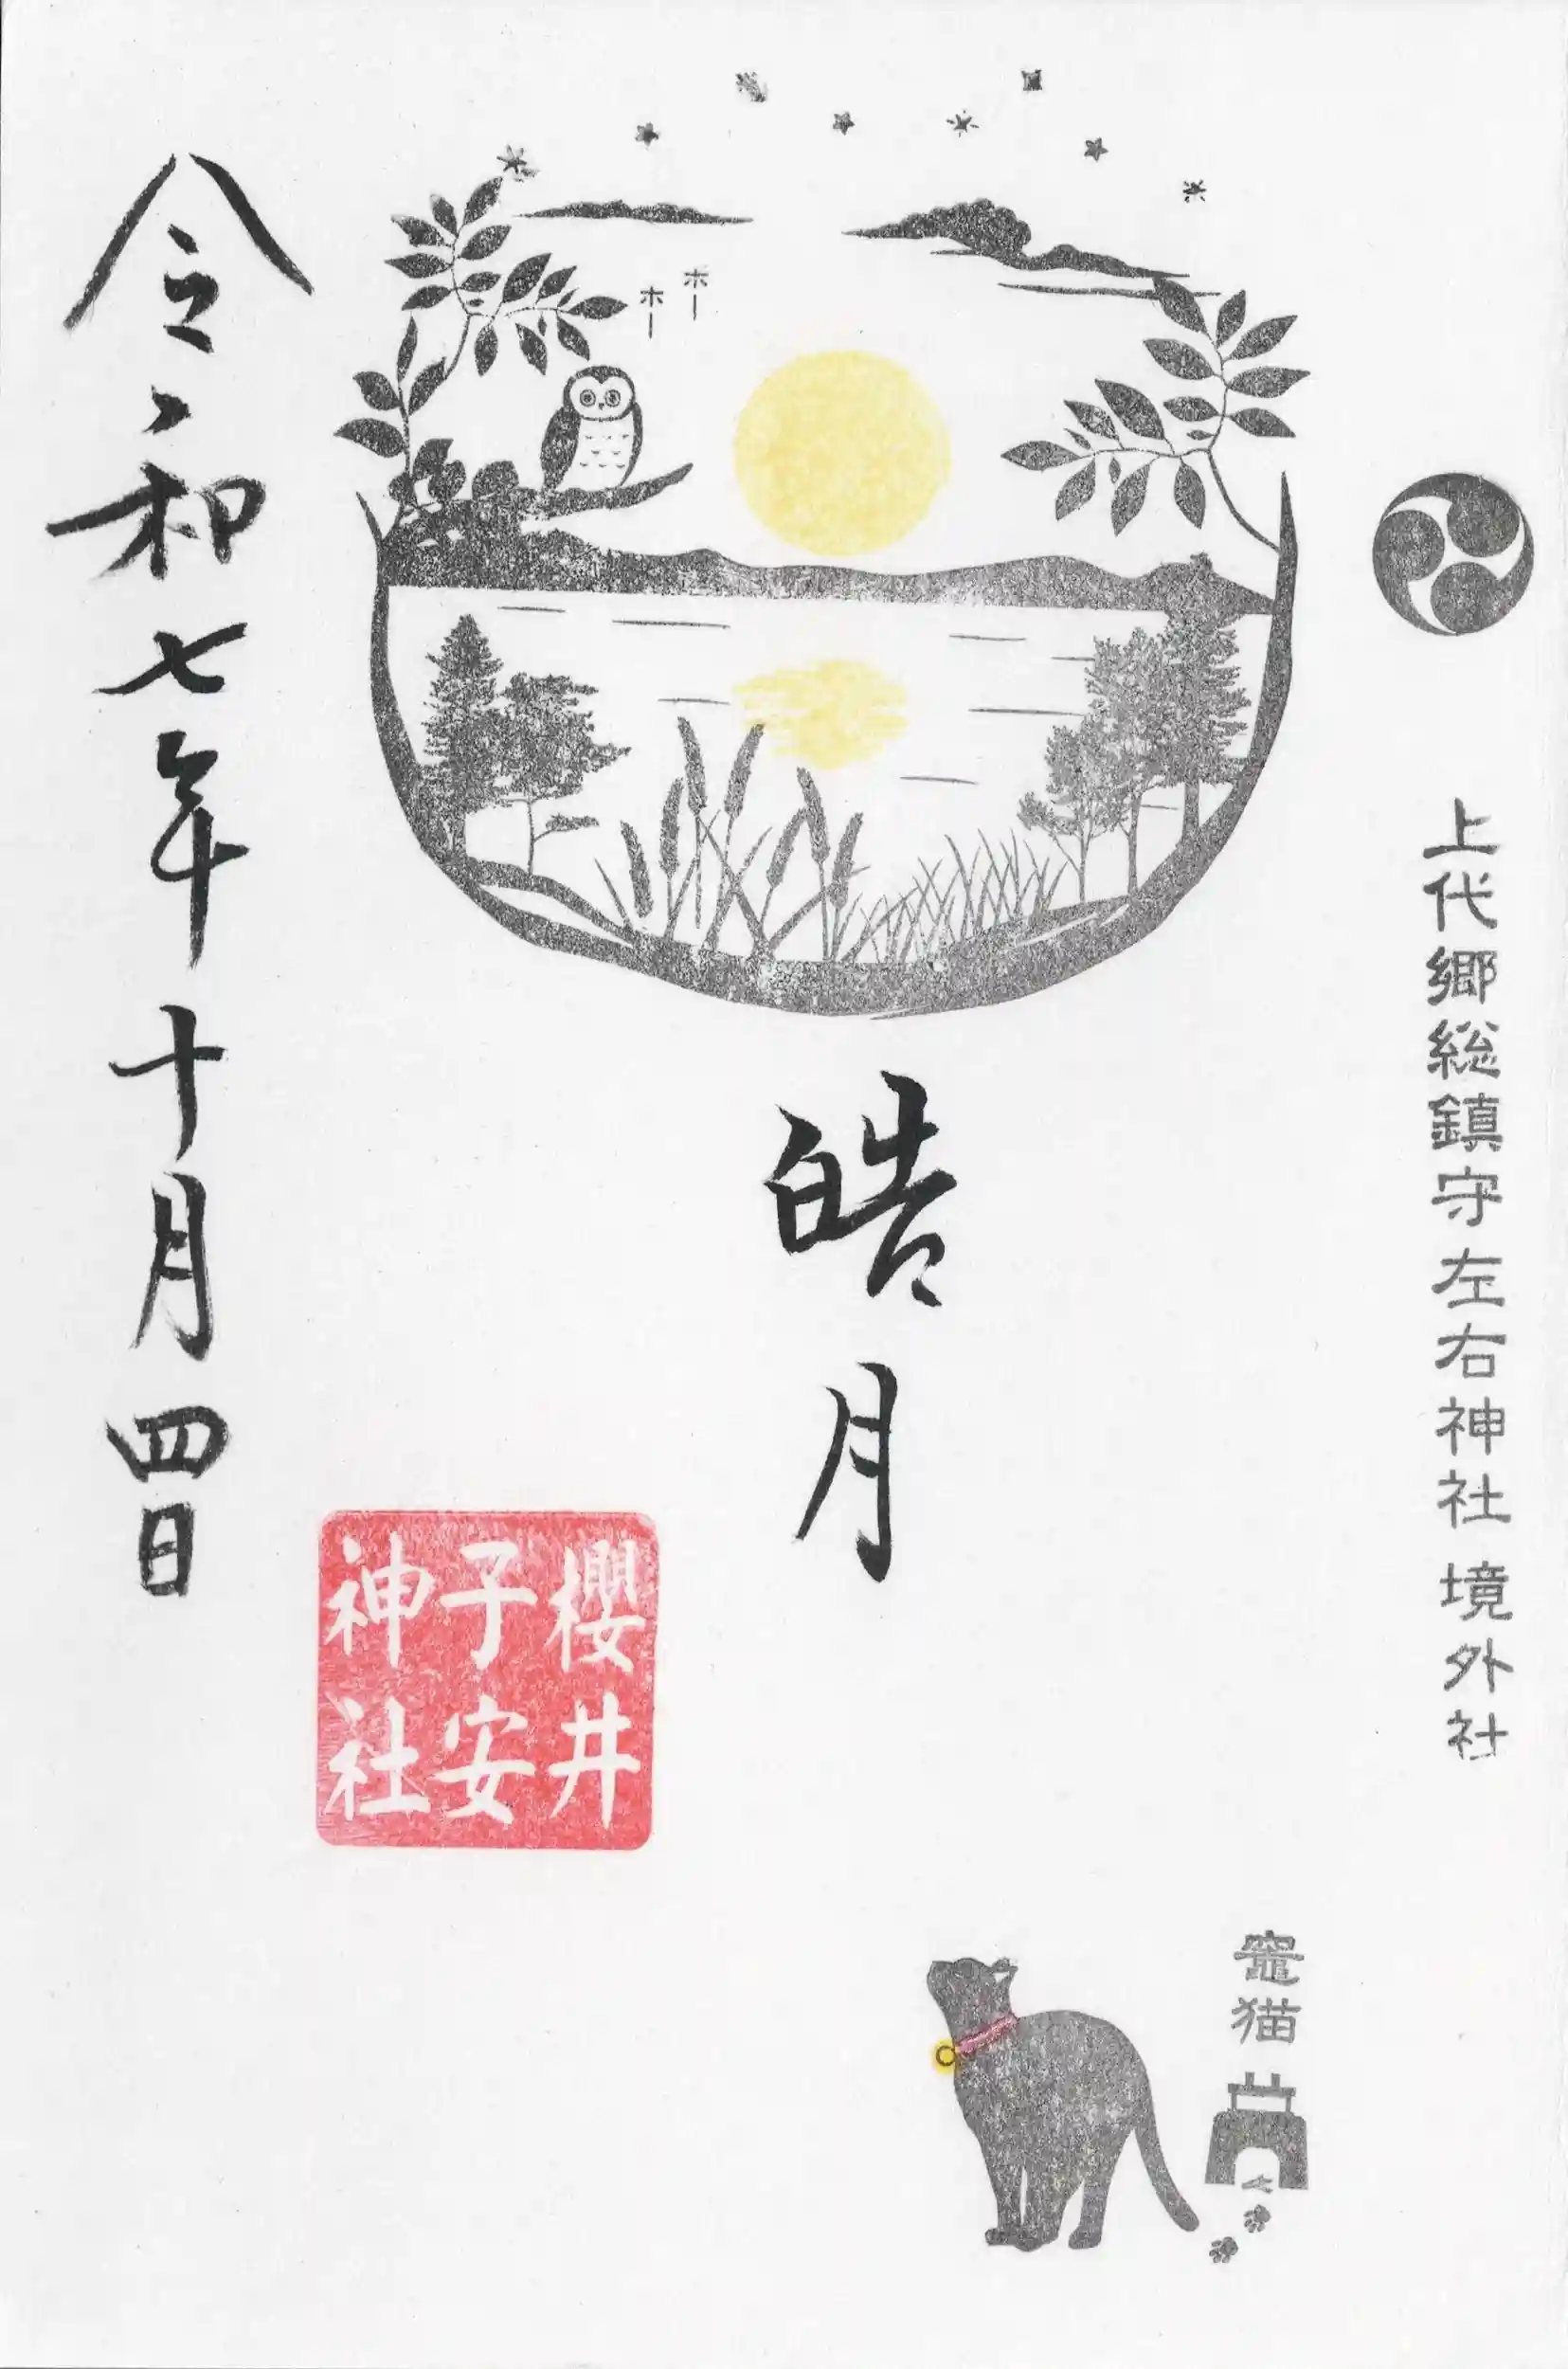 上代郷総鎮守左右神社 境外社
竈猫
皓月
ホー
ホー
櫻井
子安
神社
令和七年十月四日